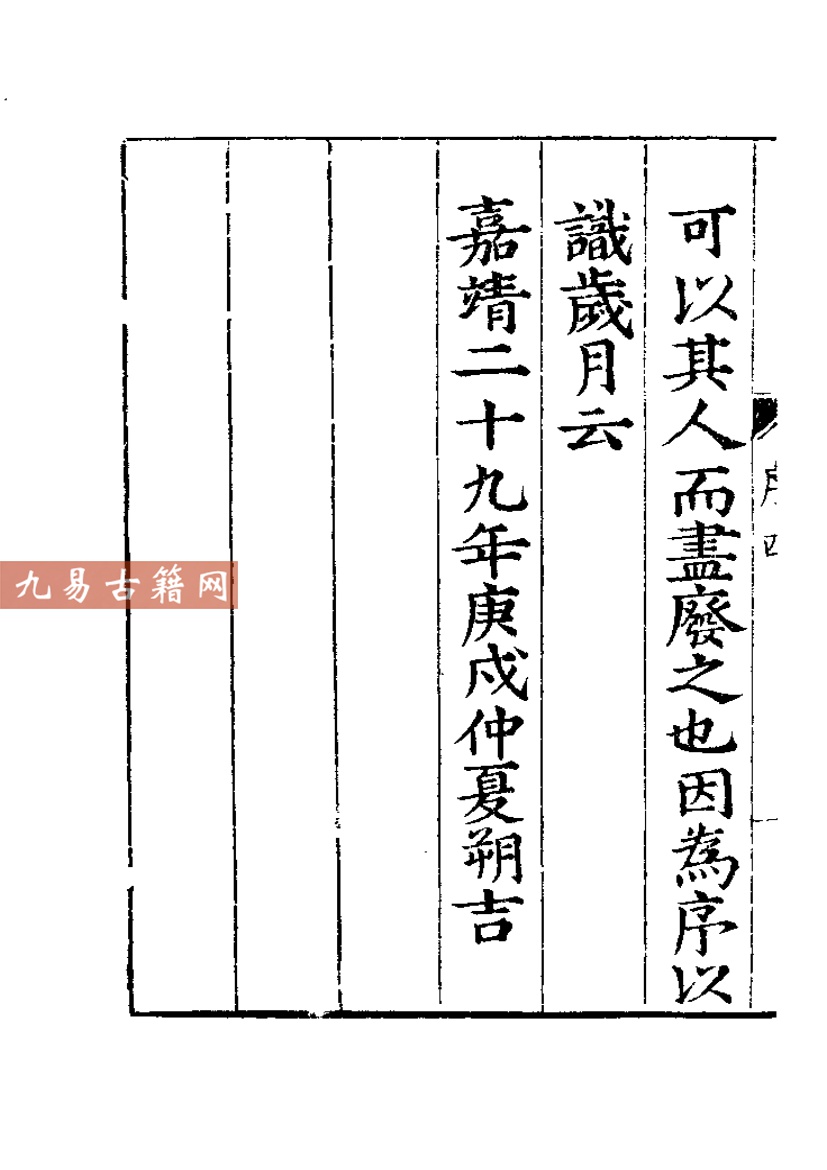 可以其人而盡廢之也因為序以
識歲月云
嘉靖二十九年庚戌仲夏朔吉
序四
九易古籍网